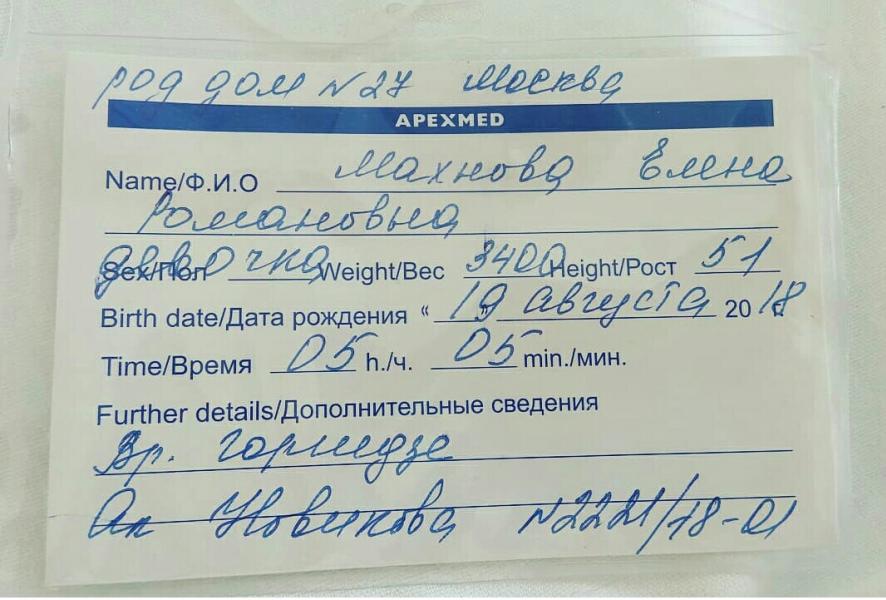 род дом N27 Москва
APEXMED
Name/Ф.И.О Махнова Елена
Романовна
Sex/Пол девочка Weight/Вес 3400 Height/Рост 51
Birth date/Дата рождения “ 19 „ августа 2018
Time/Время 05 h./ч. 05 min./мин.
Further details/Дополнительные сведения
Вр.
Ак Новикова N2221/18-01